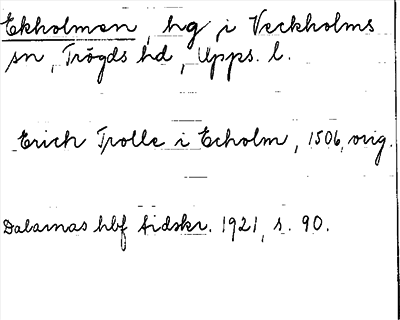 Ekholmen, hg i Veckholms
sn, Trögds hd, Upps. l.
Erich Trolle i Echolm, 1506, orig.
Dalarnas hbf tidskr. 1921, s. 90.